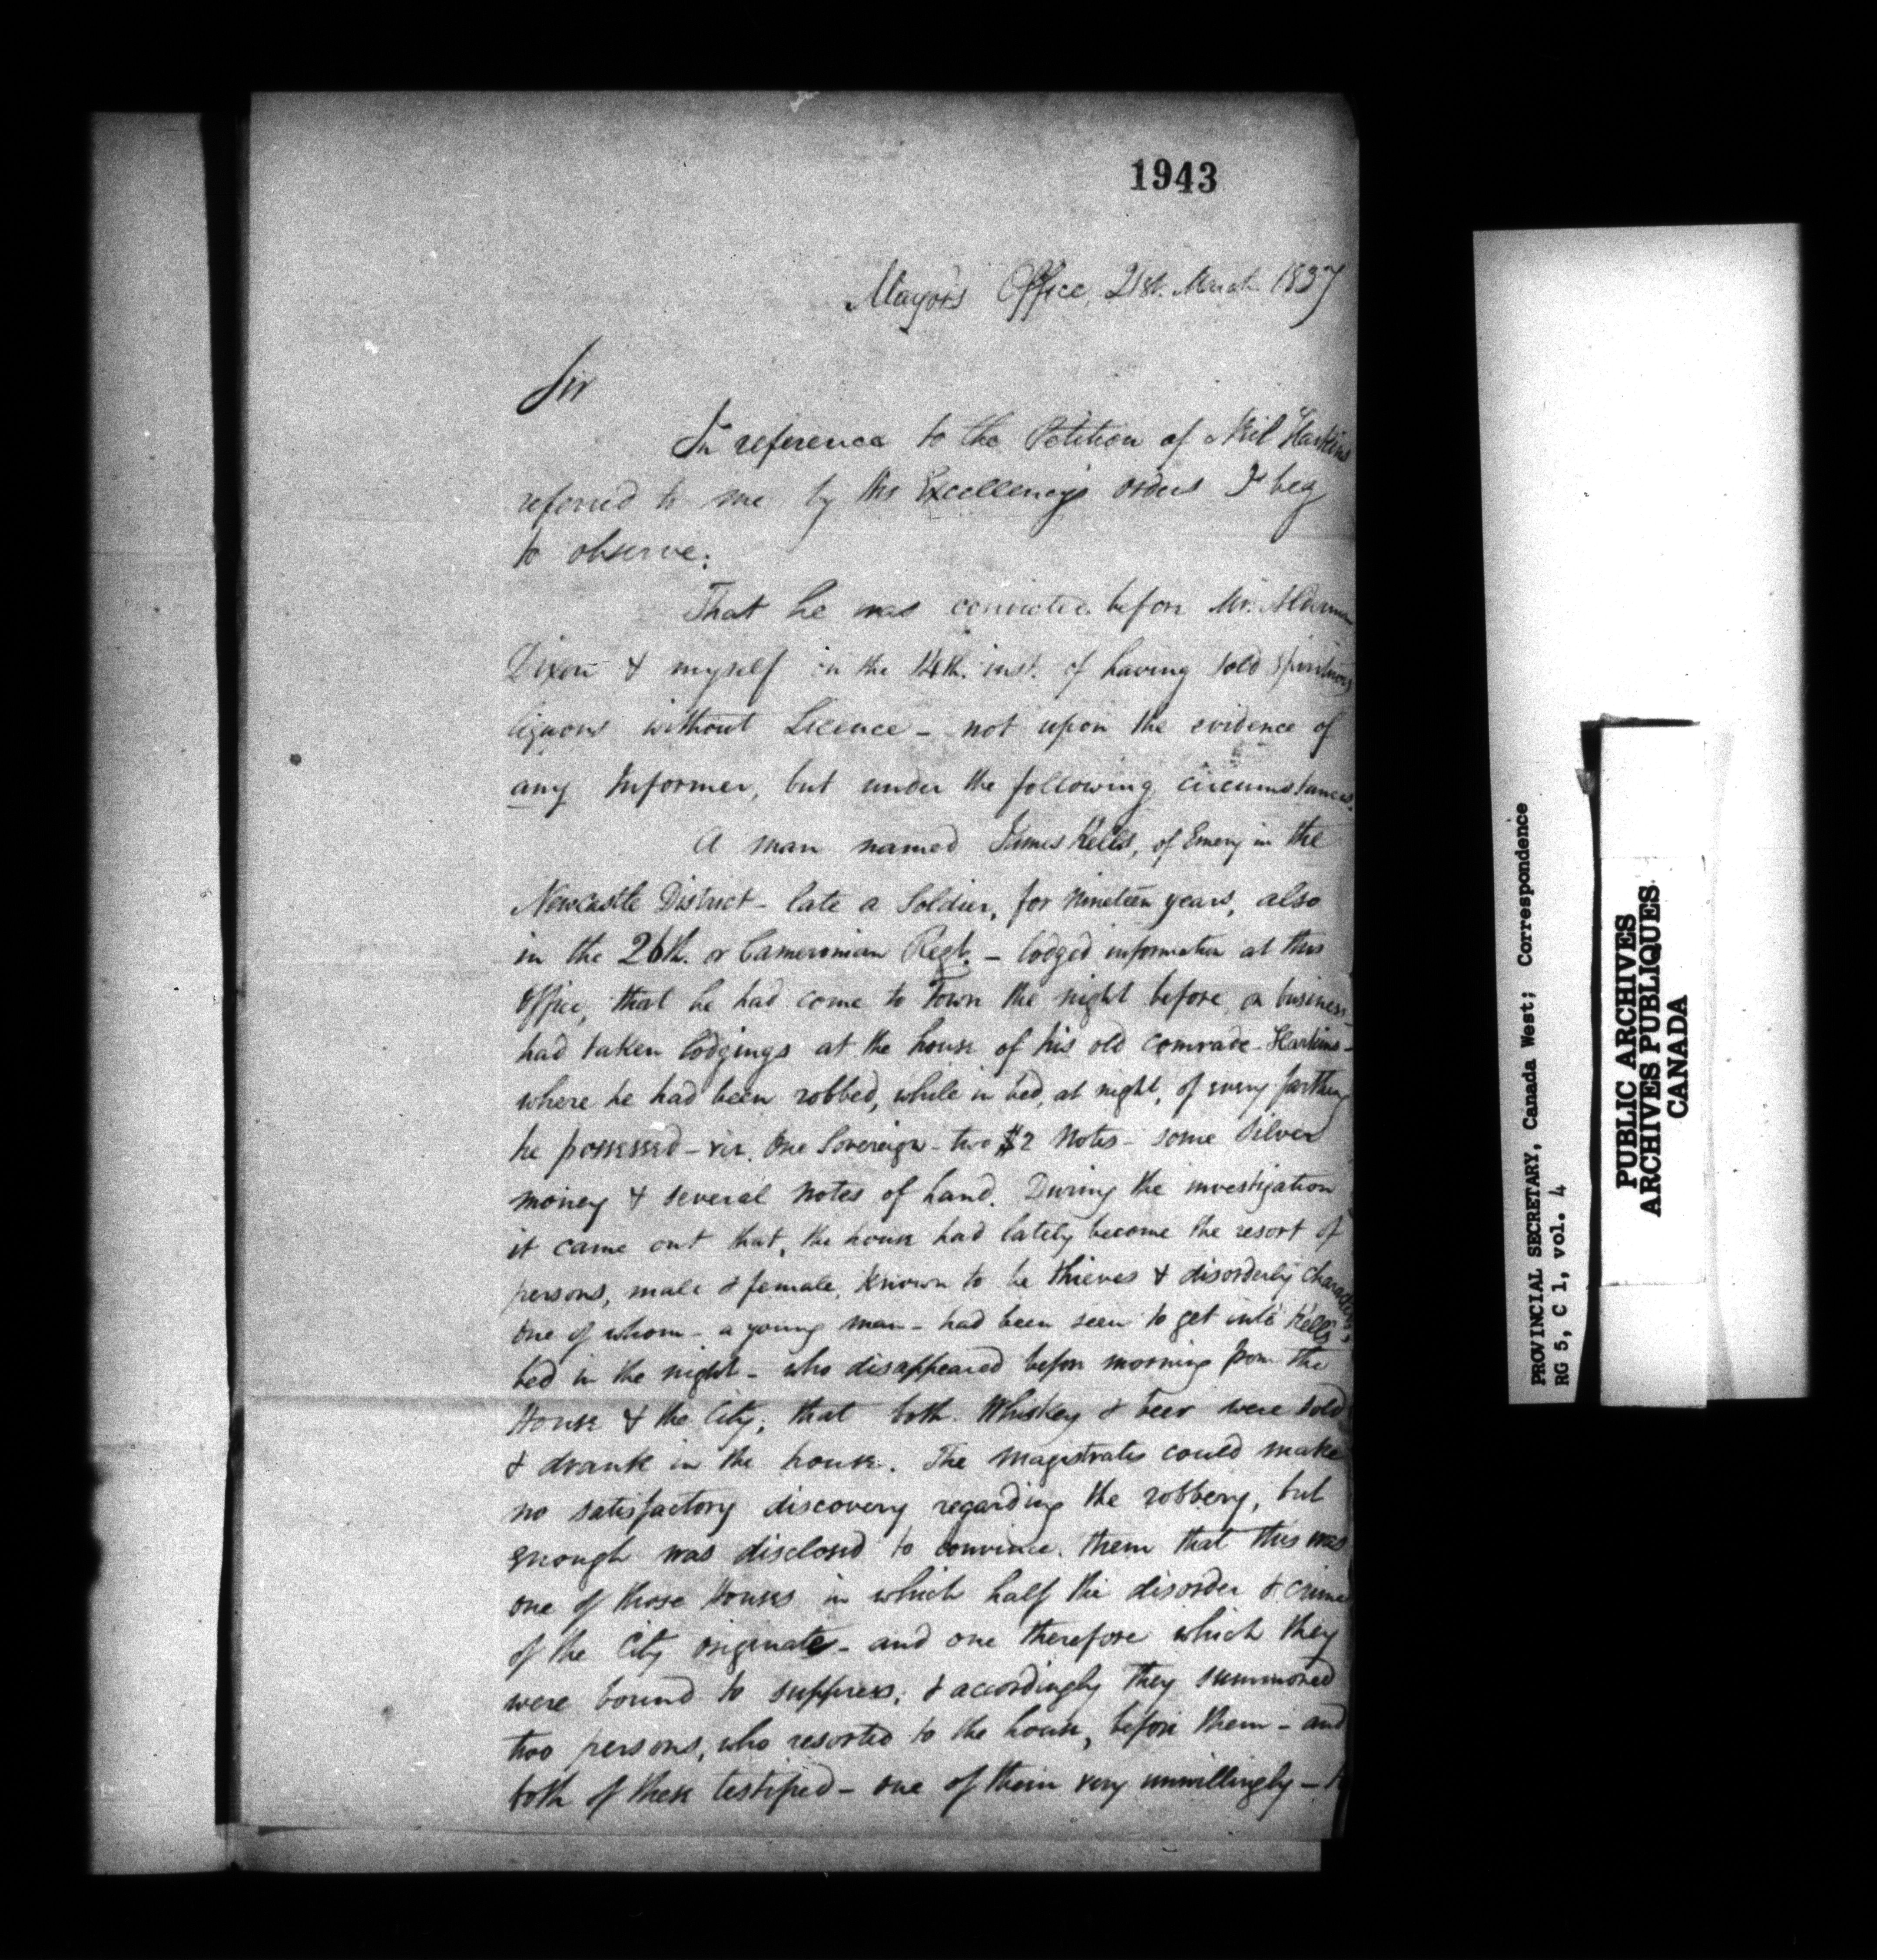 1943
Mayor's Office, 21st. March 1837
Sir
In reference to the Petition of Neil Harkins
referred to me by His Excellency's orders I beg
to observe:
That he was convicted before Mr. Alderman
Dixon & myself on the 14th. inst. of having sold spirituous
liquors without Licence - not upon the evidence of
any Informer, but under the following circumstances.
A man named James Kells, of Emery in the
Newcastle District - late a Soldier, for nineteen years, also
in the 26th. or Cameronian Regt. - lodged information at this
Office, that he had come to Town the night before, on business -
had taken lodgings at the house of his old comrade - Harkins -
where he had been robbed, while in bed, at night, of every farthing
he possessed - viz. One Sovereign - two $2 Notes - some silver
money & several notes of hand. During the investigation
it came out that, the house had lately become the resort of
persons, male & female, known to be thieves & disorderly characters
one of whom - a young man - had been seen to get into Kells's
bed in the night - who disappeared before morning from the
House & the City; that both Whiskey & beer were sold
& drank in the house. The magistrates could make
no satisfactory discovery regarding the robbery, but
enough was disclosed to convince them that this was
one of those Houses in which half the disorder & crime
of the City originates - and one therefore which they
were bound to suppress; & accordingly they summoned
two persons, who resorted to the house, before them - and
both of them testified - one of them very unwillingly -
PROVINCIAL SECRETARY, Canada West; Correspondence
RG 5, C 1, vol. 4
PUBLIC ARCHIVES
ARCHIVES PUBLIQUES
CANADA